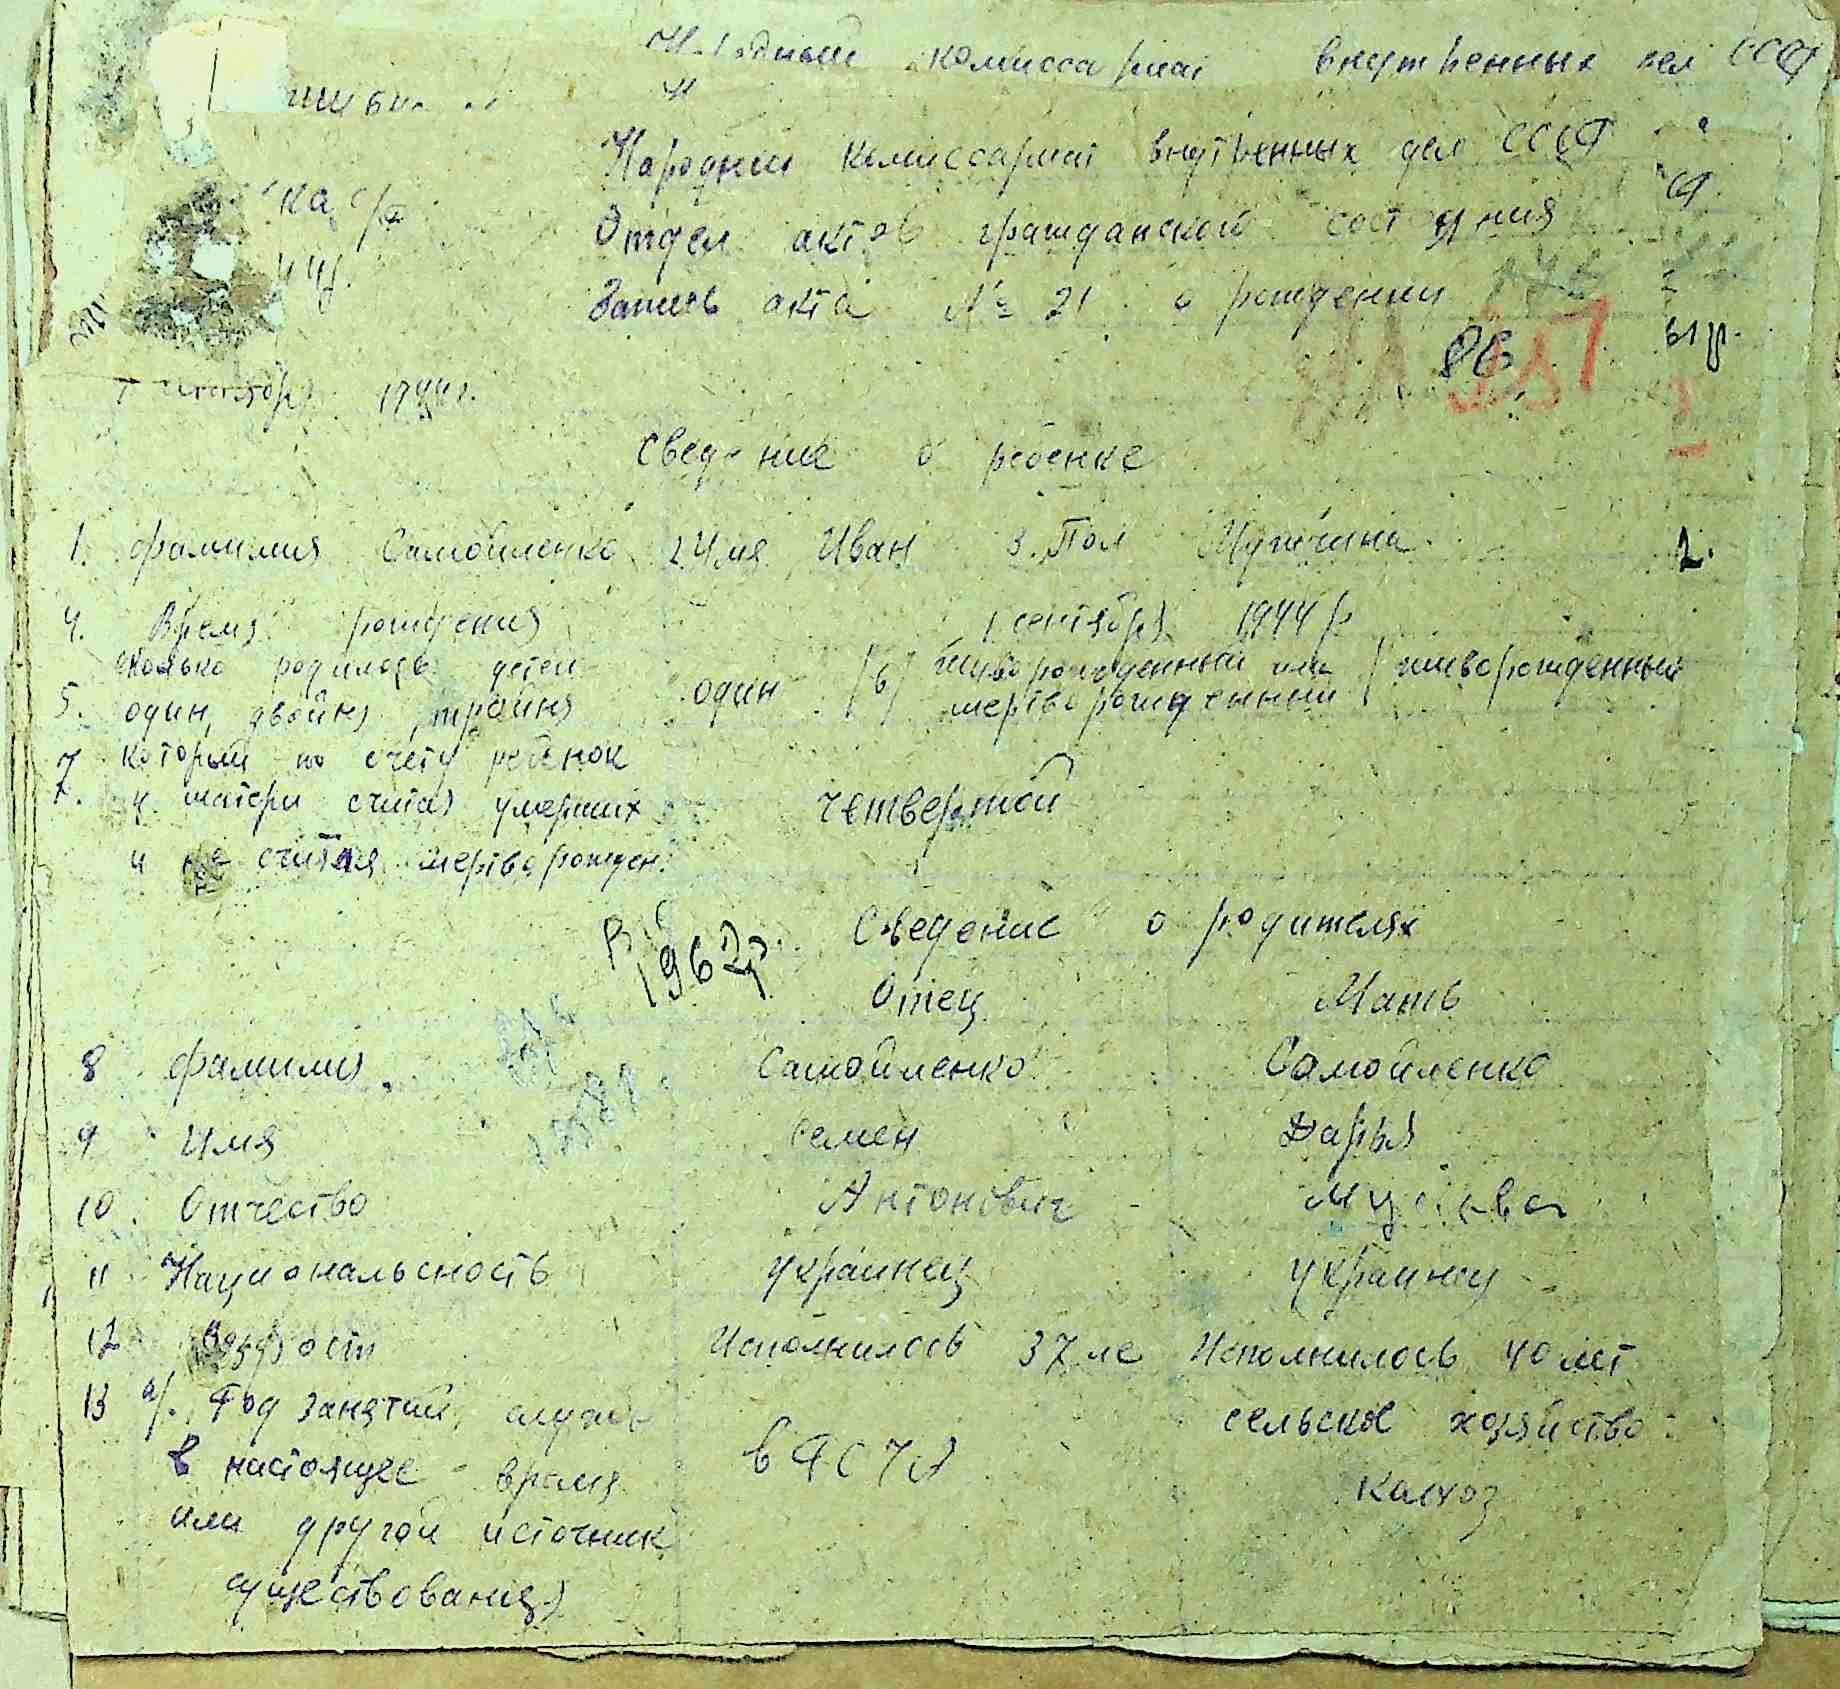 комиссариат внутренных дел СССР
Народний Комиссариат внутренных дел СССР
Отдел актов гражданской состояния
Запись акта № 21 о рождении
86
1944г.
Сведение о ребенке
1. Фамилия Самойленко 2. Имя Иван 3. Пол Мужчина
4. Время рождения 1 сентября 1944 г
сколько родилось детей
5. один, двойня, тройня один /6/ живорожденный или мертворожденный / живорожденный
7. который по счету ребенок
у матери считая умерших четвертой
и не считая мертворожден.
1962г. Сведение о родителях
Отец Мать
8 Фамилия Самойленко Самойленко
9 Имя Семен Дарья
10. Отчество Антонович
11 Национальсность украинец украинка
12 Возрост Исполнилось 37 ле Исполнилось 40 лет
13 а/. Род занятий, сельское хозяйство
в настоящее время в колхоз
или другой источник
существования)